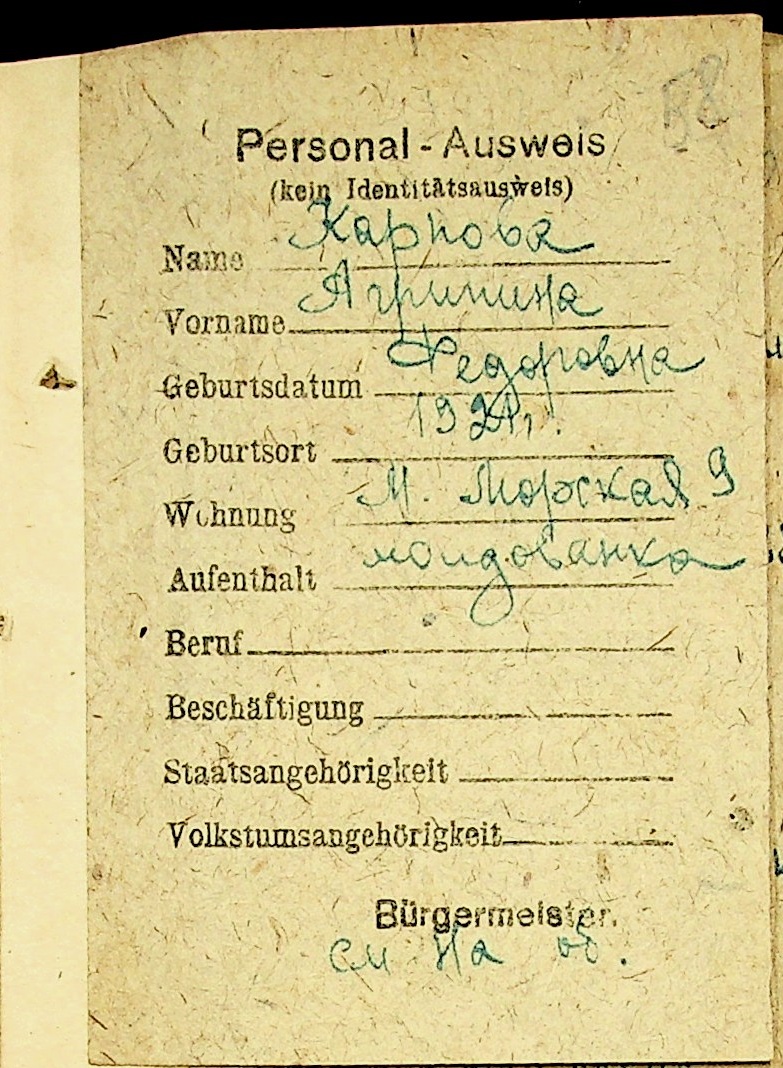 58
Personal - Ausweis
(kein Identitätsausweis)
Name Карпова
Vorname Агрипина
Федоровна
Geburtsdatum
1921 г.
Geburtsort
М. Морская 9
Wohnung
молдованка
Aufenthalt
Beruf
Beschäftigung
Staatsangehörigkeit
Volkstumsangehörigkeit
Bürgermeister.
см на об.